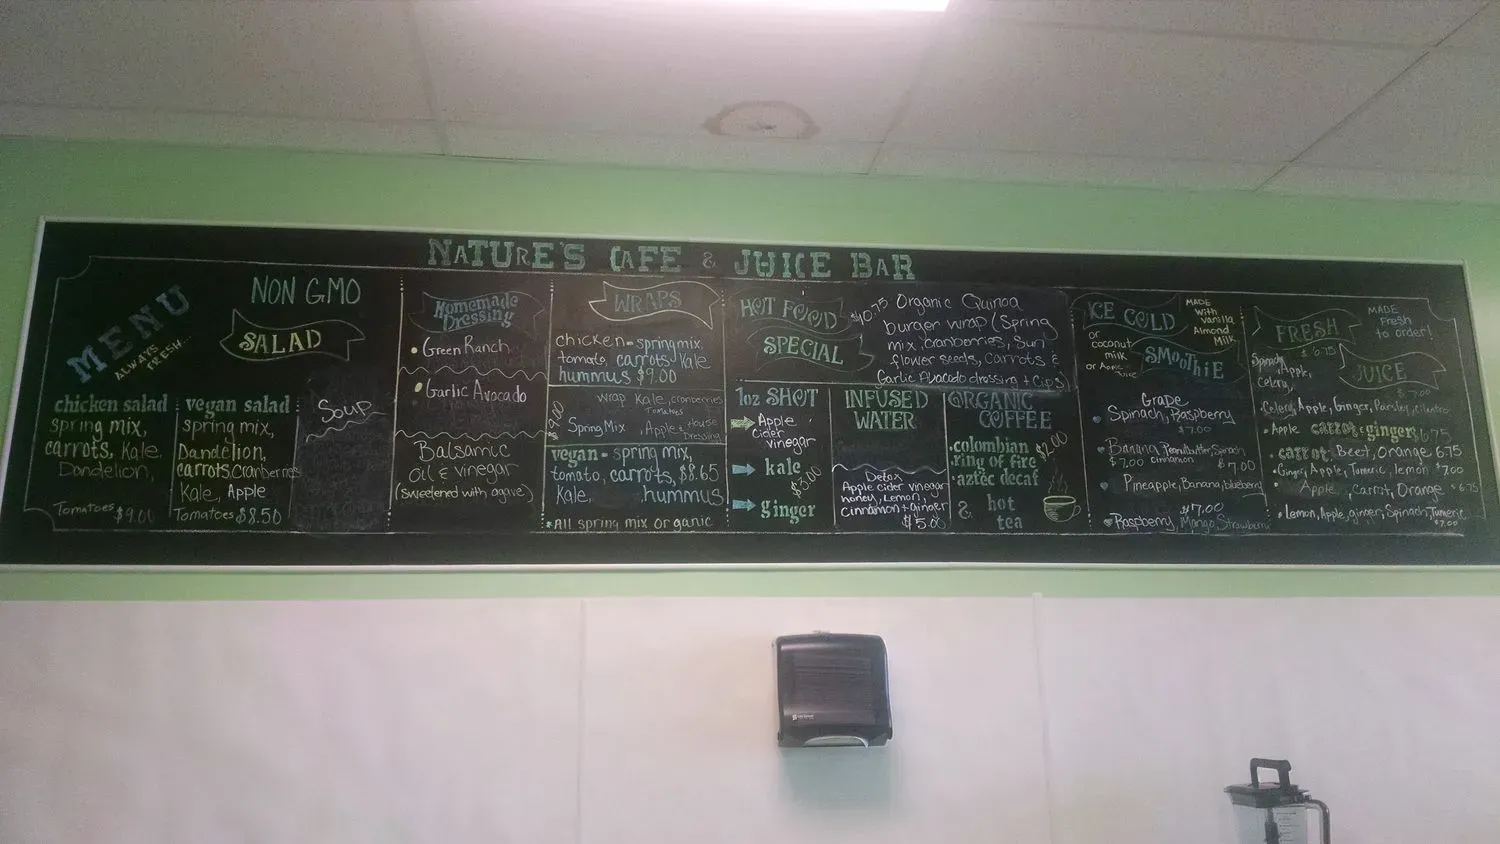 NATURE'S CAFE & JUICE BAR
MENU
ALWAYS
FRESH...
NON GMO
SALAD
chicken salad
spring mix,
carrots, Kale,
Dandelion,
Tomatoes $9.00
vegan salad
spring mix,
Dandelion,
carrots, Cranberries
Kale, Apple
Tomatoes $8.50
Soup
Homemade
Dressing
• Green Ranch
• Garlic Avocado
Balsamic
Oil & vinegar
(sweetened with agave)
WRAPS
chicken - spring mix,
tomato, carrots, Kale
hummus $9.00
$9.00
Wrap Kale, cranberries
Tomatoes
Spring Mix, Apple & House
Dressing
vegan - spring mix,
tomato, carrots, $8.65
Kale, hummus
*All spring mix organic
HOT FOOD
SPECIAL
$10.75 Organic Quinoa
burger wrap (Spring
mix, cranberries, Sun
flower seeds, Carrots &
Garlic Avacado dressing + Cips)
1oz SHOT
Apple
cider
vinegar
kale
$3.00
ginger
INFUSED
WATER
Detox
Apple cider vinegar
honey, Lemon,
Cinnamon + ginger
$5.00
ORGANIC
COFFEE
• colombian $2.00
• ring of fire
• aztec decaf
& hot
tea
ICE COLD
SMOOTHIE
MADE
With
Vanilla
Almond
Milk
or
coconut
milk
or Apple
Juice
Grape
Spinach, Raspberry
$7.00
Banana, Peanutbutter, Spinach
$7.00 Cinnamon $7.00
Pineapple, Banana, blueberry
$7.00
Raspberry, Mango, Strawberry
FRESH
JUICE
MADE
Fresh
to order!
$6.75
Apple,
Celery,
$7.00
Celery, Apple, Ginger, Parsley, cilantro
• Apple carrot & ginger $6.75
• carrot, Beet, Orange 6.75
• Ginger, Apple, Tumeric, lemon $7.00
• Apple, Carrot, Orange $6.75
• Lemon, Apple, ginger, Spinach, Tumeric
$7.00